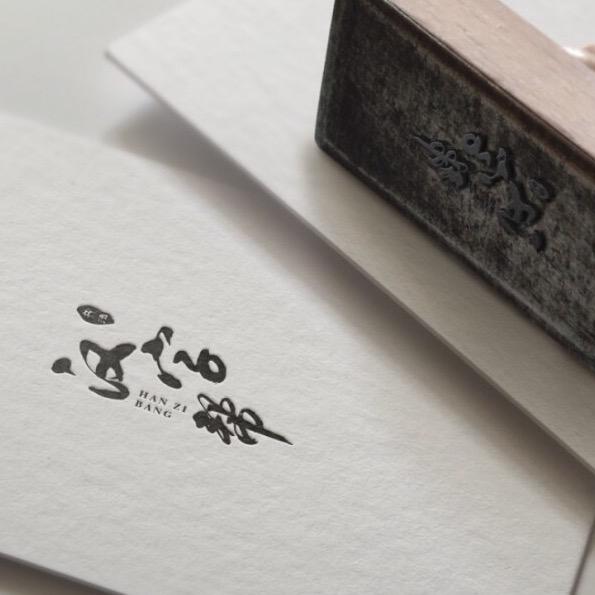 汉字帮
HAN ZI
BANG